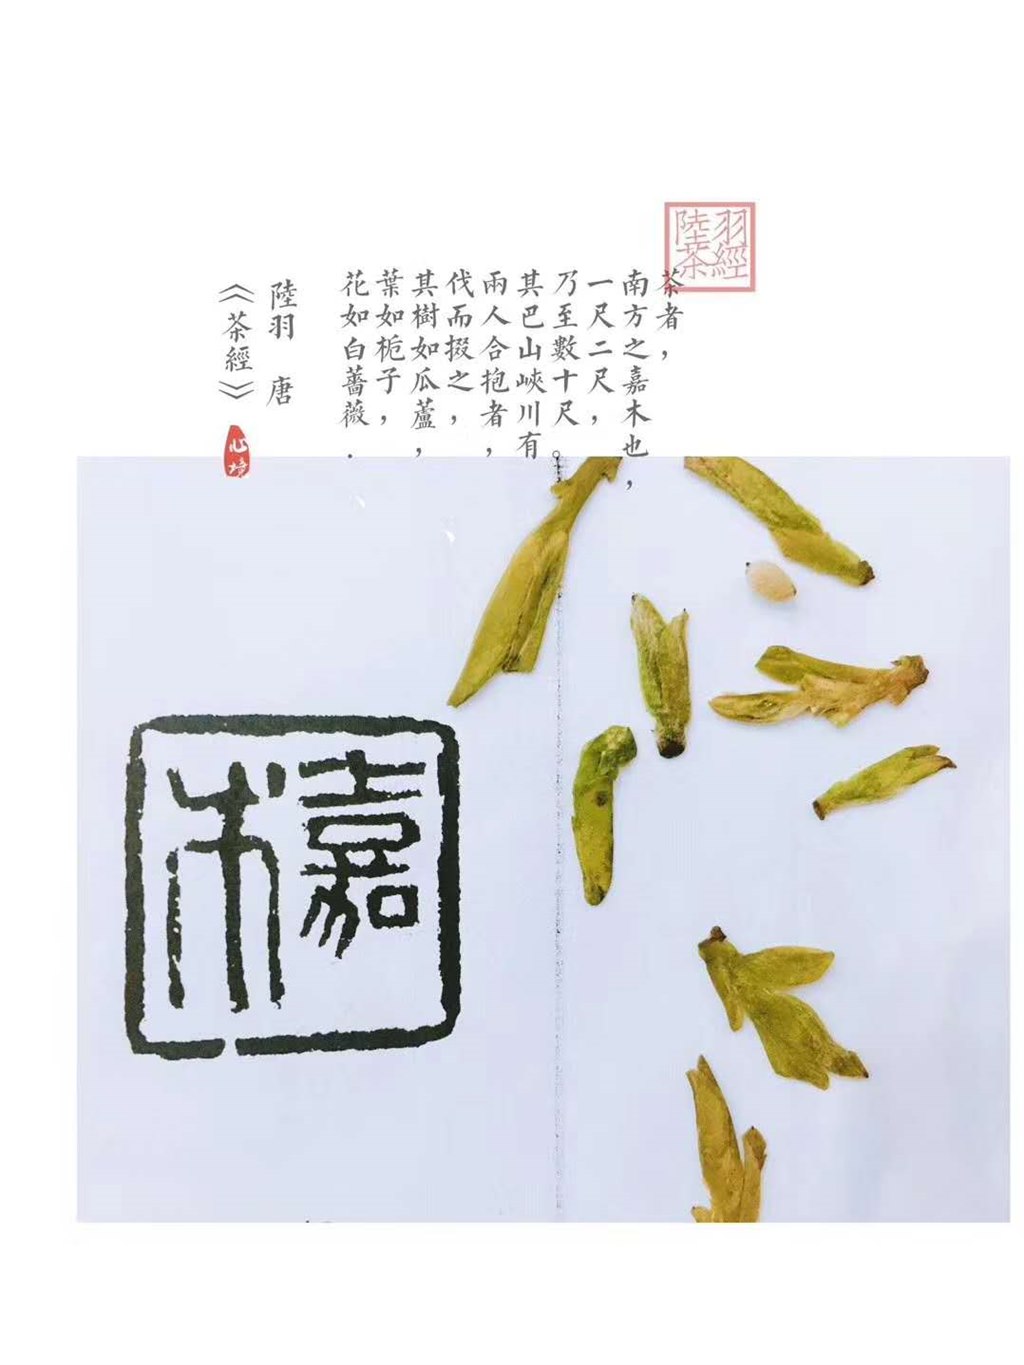 羽經
陸茶
茶者，
南方之嘉木也，
一尺二尺，
乃至數十尺。
其巴山峽川有
兩人合抱者，
伐而掇之，
其樹如瓜蘆，
葉如栀子，
花如白薔薇．
陸羽 唐
《茶經》
心境
嘉木